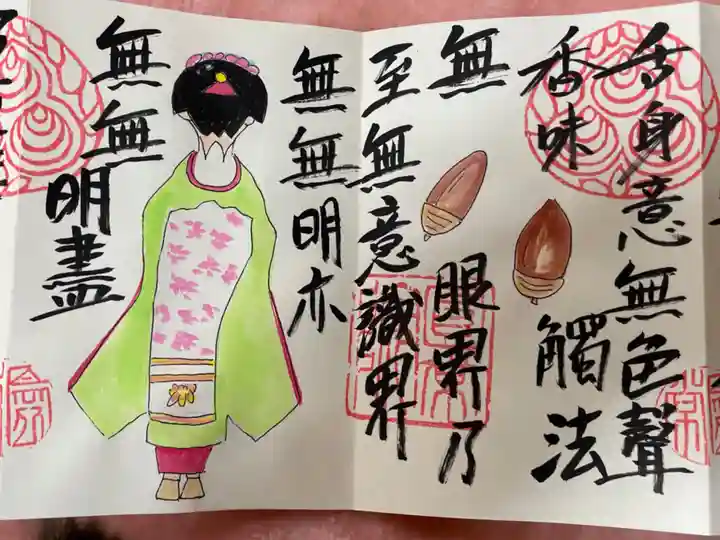 舌身意無色聲
香味觸法
無眼界乃
至無意識界
無無明亦
無無明盡